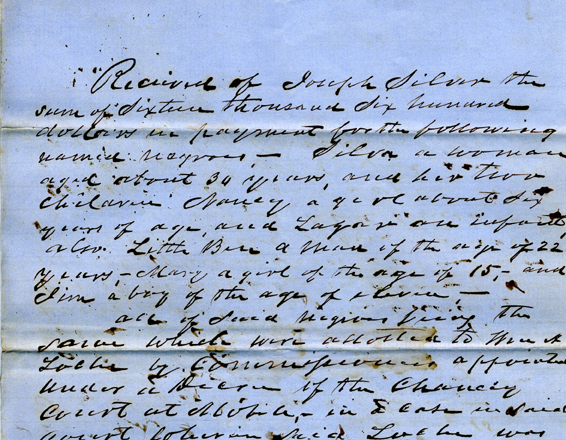 Recieved of Joseph Silver the
sum of Sixteen thousand Six hundred
dollars in payment for the following
named negroes — Silva a woman
aged about 34 years, and her two
Children Nancy a girl about Six
years of age, and an infant,
also Little Ben a man of the age of 22
years, — Mary a girl of the age of 15, — and
Jim a boy of the age of eleven, —
all of said negroes being the
same which were allotted to
Locke by Commissioners appointed
under a Decree of the Chancery
Court at Mobile, — in a Case in said
court wherein said Locke was